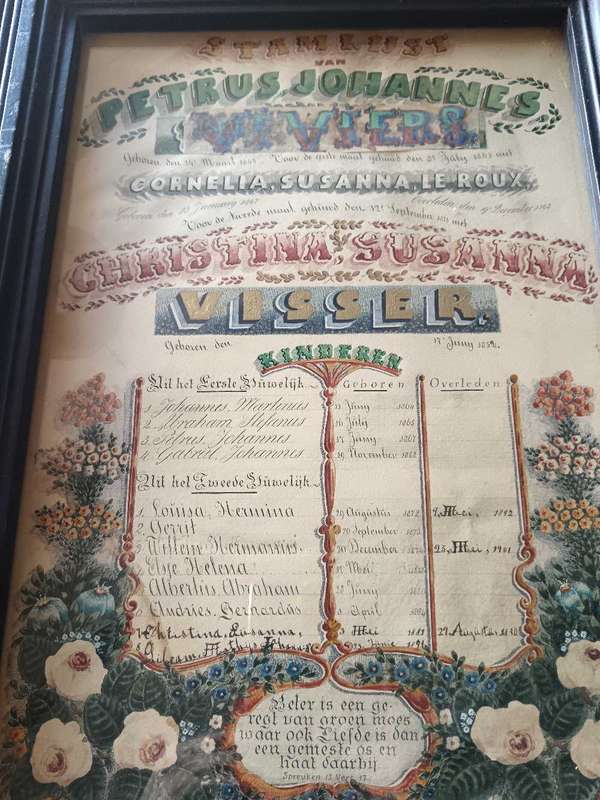 STAMLIJST
VAN
PETRUS, JOHANNES
VIVIERS.
Geboren den Maart Voor de eerste maal gehuwd den July met
CORNELIA, SUSANNA, LE ROUX,
Geboren den January Overleden, den December
Voor de tweede maal, gehuwd den 12e September met
CHRISTINA, SUSANNA
VISSER,
Geboren den 17e Juny 1852.
KINDEREN
Uit het Eerste Huwelijk. Geboren Overleden
1. Johannes Martinus Juny 1864
2. Abraham Stefanus 16 July 1865
3. Petrus, Johannes 17 Juny 1867
4. Gabriël, Johannes November
Uit het Tweede Huwelijk.
1. Louisa, Hermina 29 Augustus 1872 Mei, 1892
2. Gerrit September
3. Willem Hermanus. 20 December 23, Mei, 1901
Elsje Helena Mei
Albertus, Abraham Juny
Andries, Gerhardus April
Christina, Susanna, Mei Augustus
June
Beter is een ge-
regt van groen moes
waar ook Liefde is dan
een gemeste os en
haat daarbij.
Spreuken 15 Vers. 17.